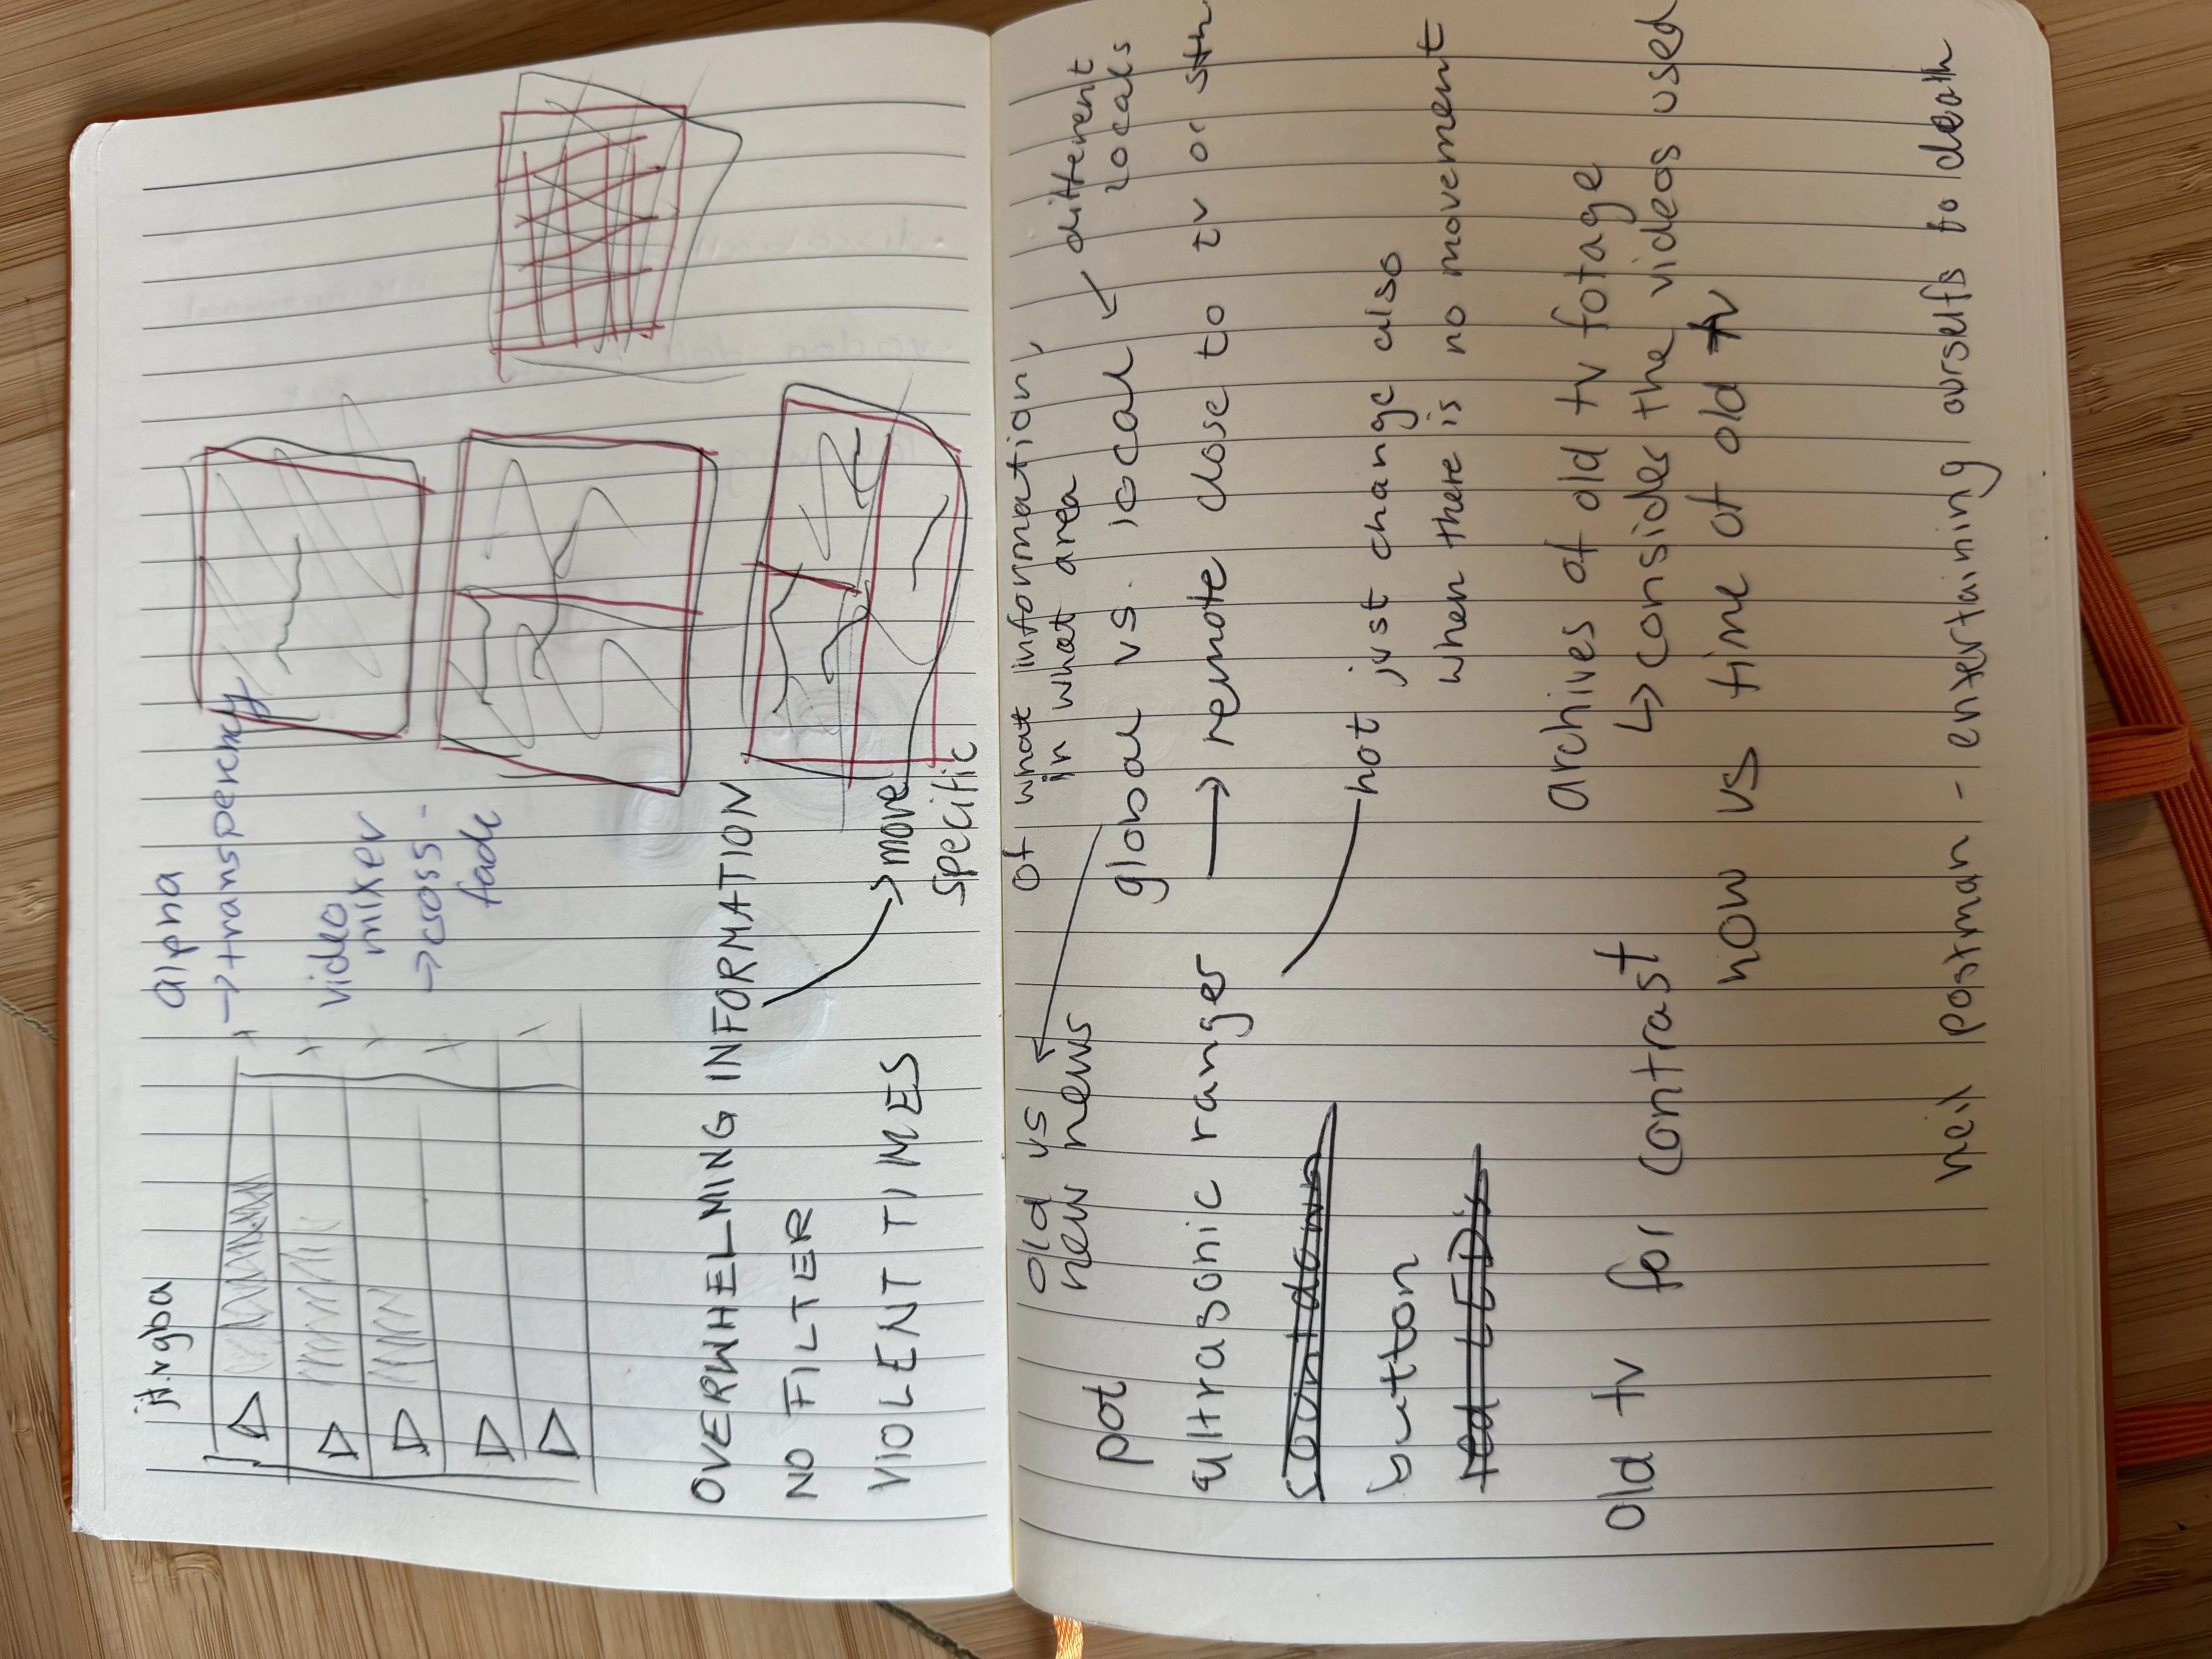 jt.rgba
alpha
→ transperency
video
mixer
→ cross-
fade
OVERWHELMING INFORMATION
NO FILTER
→ more
specific
VIOLENT TIMES
old vs
new news
of what information,
in what area
pot
global vs. local ← different
locals
ultrasonic ranger
→ remote close to tv or sth
countdown
not just change also
when there is no movement
button
red LED's
archives of old tv fotage
↳ consider the videos used
old tv for contrast
now vs time of old tv
neil postman - entertaining ourselfs to death